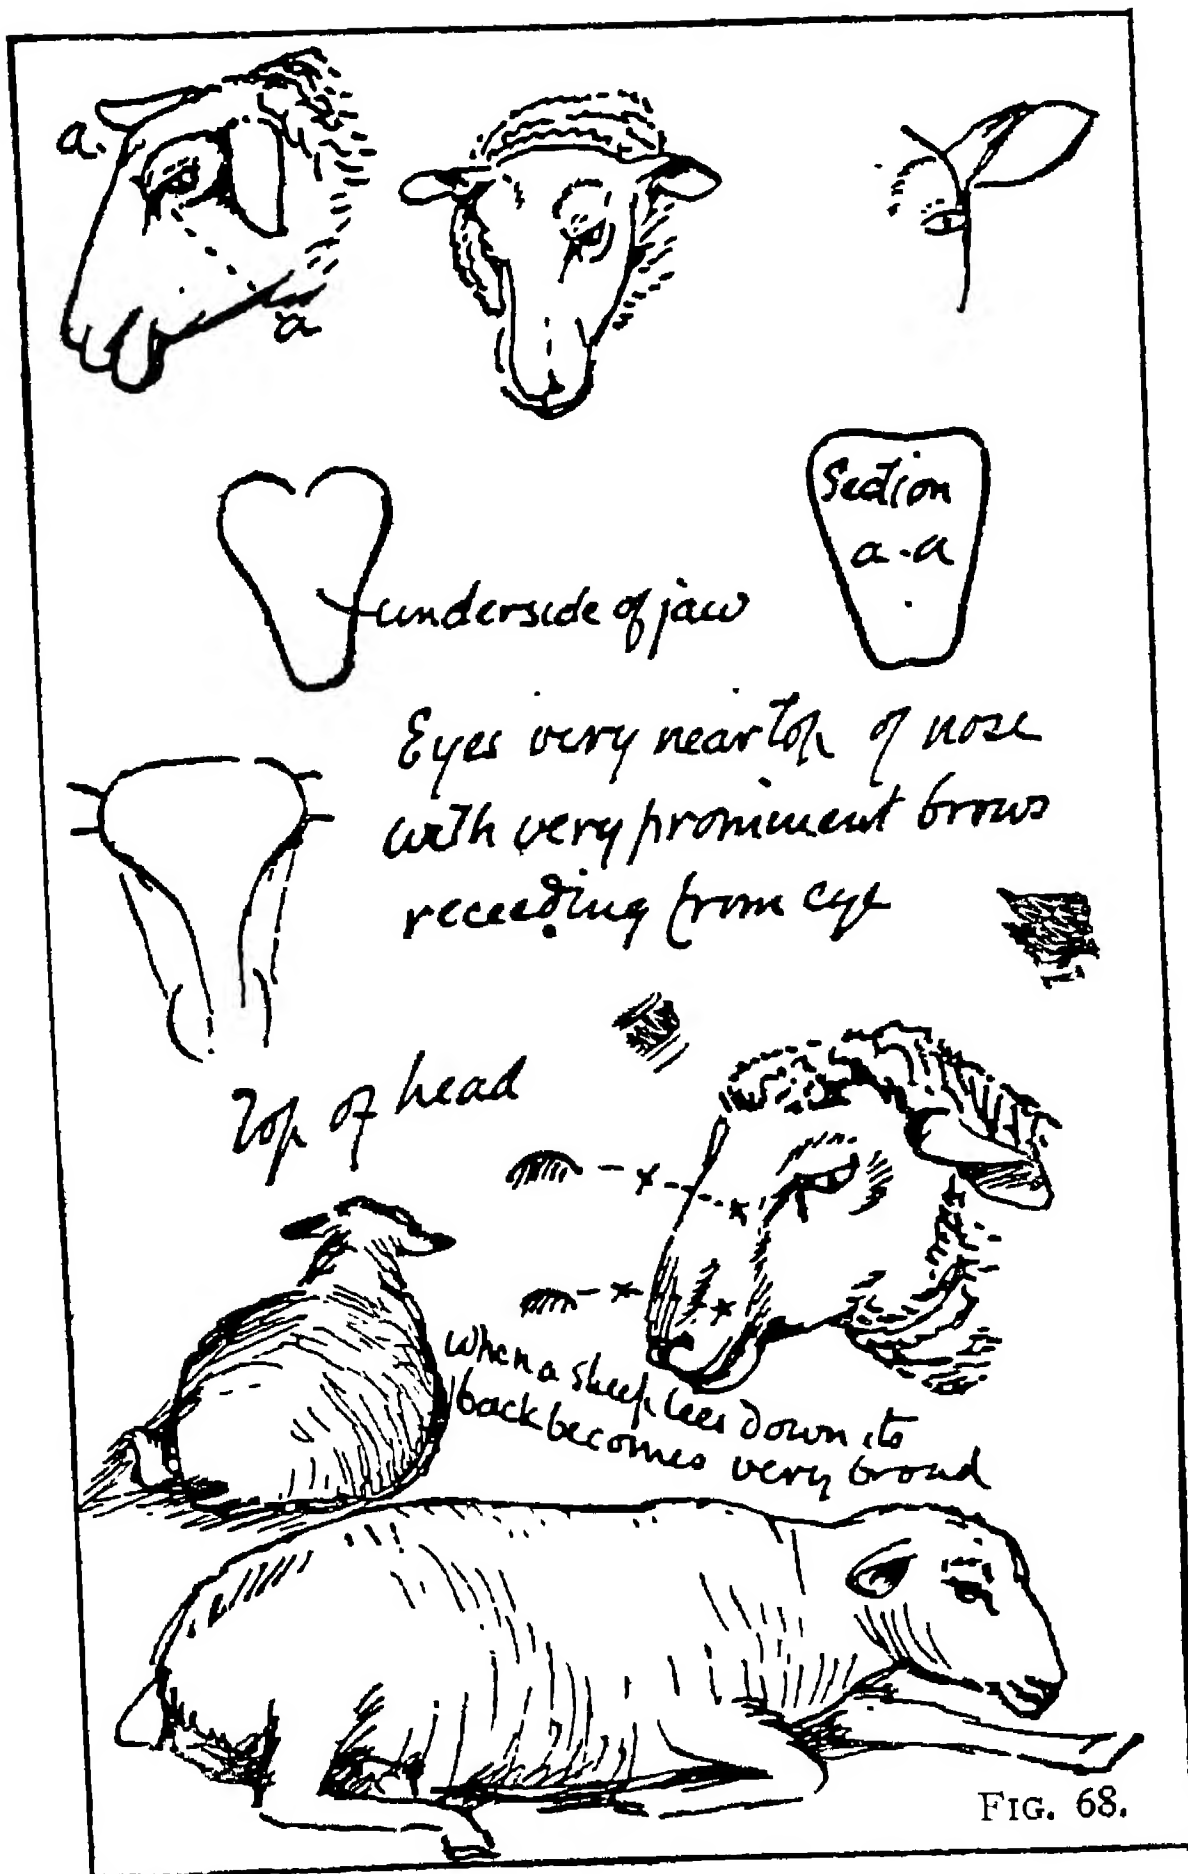 a.
a
Section
a.a
underside of jaw
Eyes very near top of nose
with very prominent brows
receeding from eye
Top of head
When a sheep lees down its
back becomes very broad
FIG. 68.